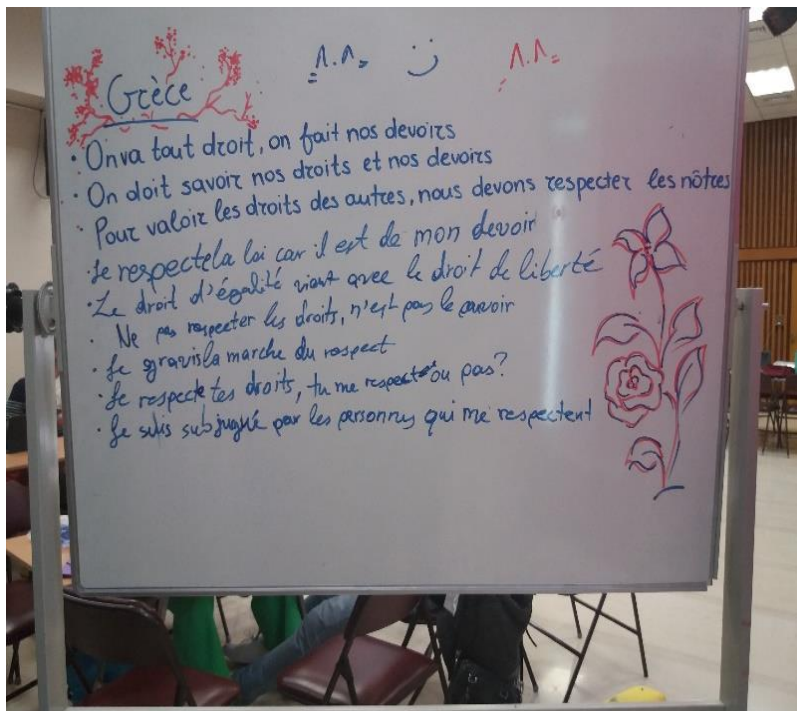 Grèce
· On va tout droit, on fait nos devoirs
· On doit savoir nos droits et nos devoirs
· Pour valoir les droits des autres, nous devons respecter les nôtres
· Je respecte la loi car il est de mon devoir
· Le droit d'égalité vient avec le droit de liberté
· Ne pas respecter les droits, n'est pas le pouvoir
· Je gravis la marche du respect
· Je respecte tes droits, tu me respectes ou pas?
· Je suis subjugué par les personnes qui me respectent